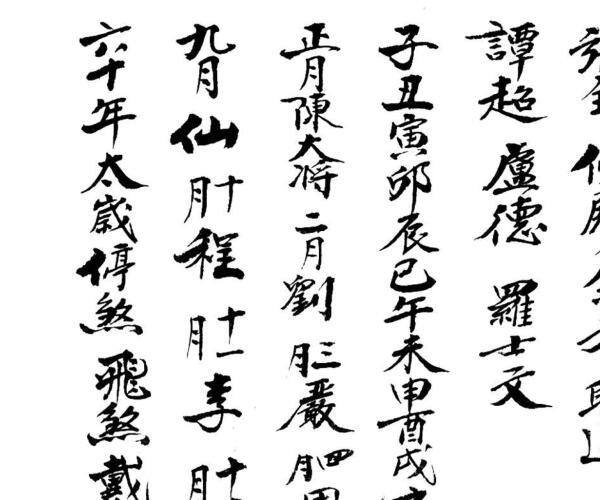 譚超 盧德 羅士文
子丑寅卯辰巳午未申酉戌
正月陳大将 二月劉 三月嚴 四月
九月仙 十月程 十一月李
六十年太歲停煞 飛煞戴